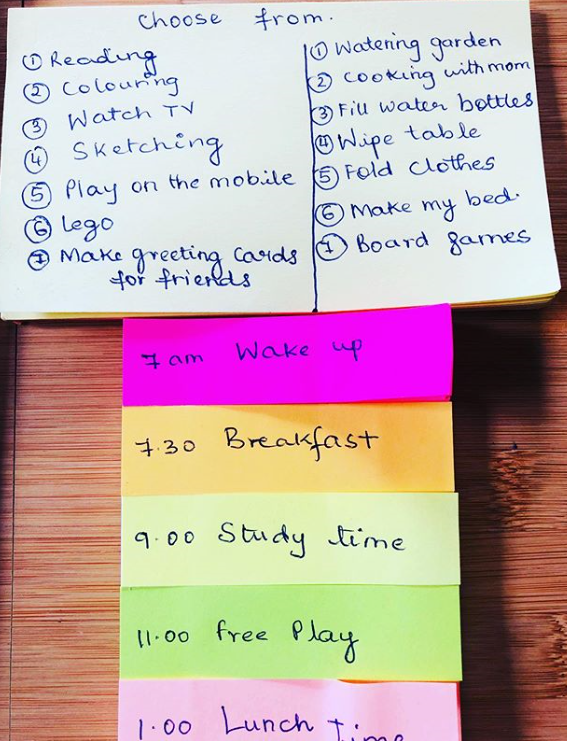 Choose from.
① Reading
② Colouring
③ Watch TV
④ Sketching
⑤ Play on the mobile
⑥ Lego
⑦ Make greeting cards
for friends
① Watering garden
② Cooking with mom
③ Fill water bottles
④ Wipe table
⑤ Fold clothes
⑥ Make my bed.
⑦ Board games
7 am Wake up
7.30 Breakfast
9.00 Study time
11.00 free Play
1.00 Lunch time